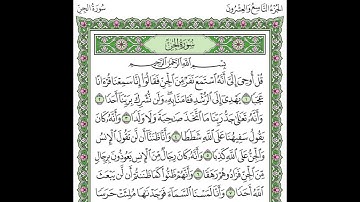 سُورَةُ الجِنِّ الجُزْءُ التَّاسِعُ وَالعِشْرُونَ
سُورَةُ الجِنِّ
بِسْمِ اللَّهِ الرَّحْمَٰنِ الرَّحِيمِ
قُلْ أُوحِيَ إِلَيَّ أَنَّهُ اسْتَمَعَ نَفَرٌ مِّنَ الْجِنِّ فَقَالُوا إِنَّا سَمِعْنَا قُرْآنًا
عَجَبًا ١ يَهْدِي إِلَى الرُّشْدِ فَآمَنَّا بِهِ وَلَن نُّشْرِكَ بِرَبِّنَا أَحَدًا ٢
وَأَنَّهُ تَعَالَىٰ جَدُّ رَبِّنَا مَا اتَّخَذَ صَاحِبَةً وَلَا وَلَدًا ٣ وَأَنَّهُ كَانَ
يَقُولُ سَفِيهُنَا عَلَى اللَّهِ شَطَطًا ٤ وَأَنَّا ظَنَنَّا أَن لَّن تَقُولَ الْإِنسُ
وَالْجِنُّ عَلَى اللَّهِ كَذِبًا ٥ وَأَنَّهُ كَانَ رِجَالٌ مِّنَ الْإِنسِ يَعُوذُونَ بِرِجَالٍ
مِّنَ الْجِنِّ فَزَادُوهُمْ رَهَقًا ٦ وَأَنَّهُمْ ظَنُّوا كَمَا ظَنَنتُمْ أَن لَّن يَبْعَثَ
اللَّهُ أَحَدًا ٧ وَأَنَّا لَمَسْنَا السَّمَاءَ فَوَجَدْنَاهَا مُلِئَتْ حَرَسًا